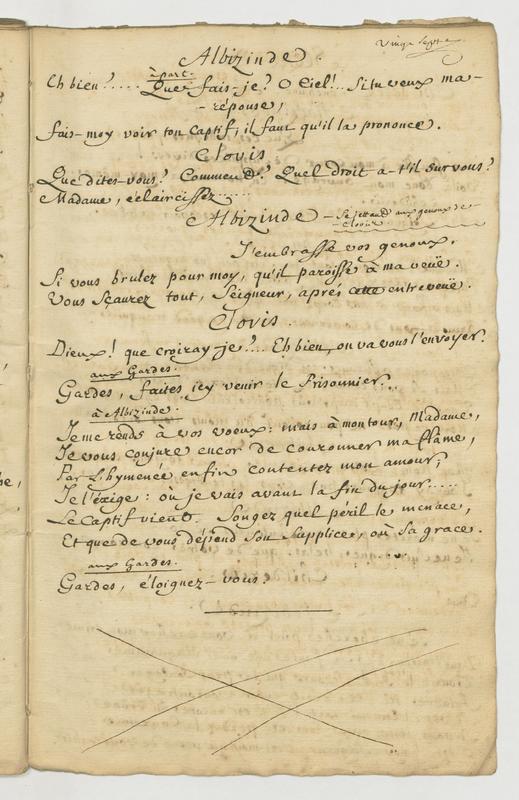 Vingt Sept e
Albizinde.
à part.
Eh bien?..... Que fais-je? O Ciel!.. Si tu veux ma-
-réponse,
fais-moy voir ton Captif; il faut qu'il la prononce.
Clovis
Que dites-vous? Comment? Quel droit a-t'il sur vous?
Madame, éclaircissez......
Albizinde - Se jettant aux genoux de-
-Clovis
J'embrasse vos genoux.
Si vous brulez pour moy, qu'il paroisse à ma veüe.
Vous Sçaurez tout, Seigneur, aprés cette entreveüe.
Clovis.
Dieux! que croiray-je?... Eh bien, on va vous l'envoyer.
aux Gardes.
Gardes, faites icy venir le Prisonnier...
à Albizinde.
Je me rends à vos voeux: mais à mon tour, Madame,
Je vous conjure encor de couronner ma flame,
Par L'hymenée enfin contentez mon amour;
Je l'éxige: où je vais avant la fin du jour.....
Le Captif vient. Songez quel péril le menace,
Et que de vous dépend Son Supplice, où Sa grace.
aux Gardes.
Gardes, éloignez-vous.